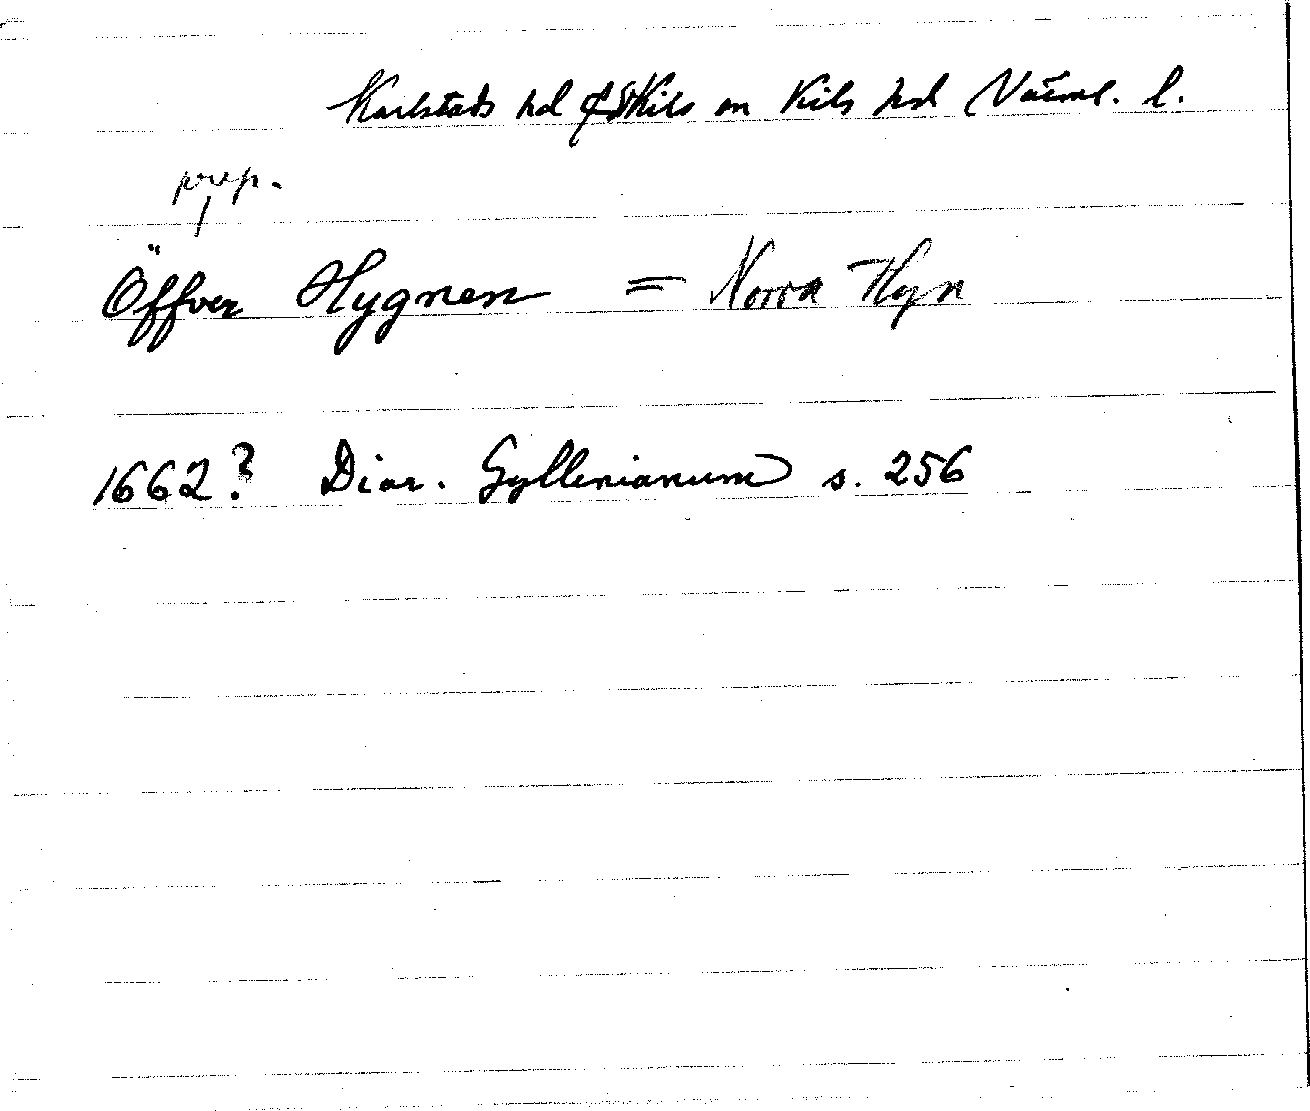 Karlstads hd o St Kils sn Kils hd Värml. l.
prep.
Öffver Hygnen = Norra Hyn
1662? Diar. Gyllenianum s. 256